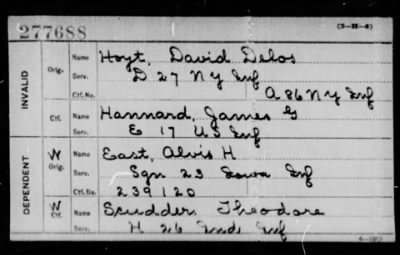 277688
(3-H-4)
INVALID
Orig. Name Hoyt, David Delos
Serv. D 27 N Y Inf
Ctf. No. A 86 N Y Inf
Ctf. Name Hannard, James G
Serv. E 17 U S Inf
DEPENDENT
W Orig. Name East, Alvis H
Serv. Sgn 23 Iowa Inf
Ctf. No. 239120
W Ctf. Name Scudder, Theodore
Serv. H 26 Ind Inf